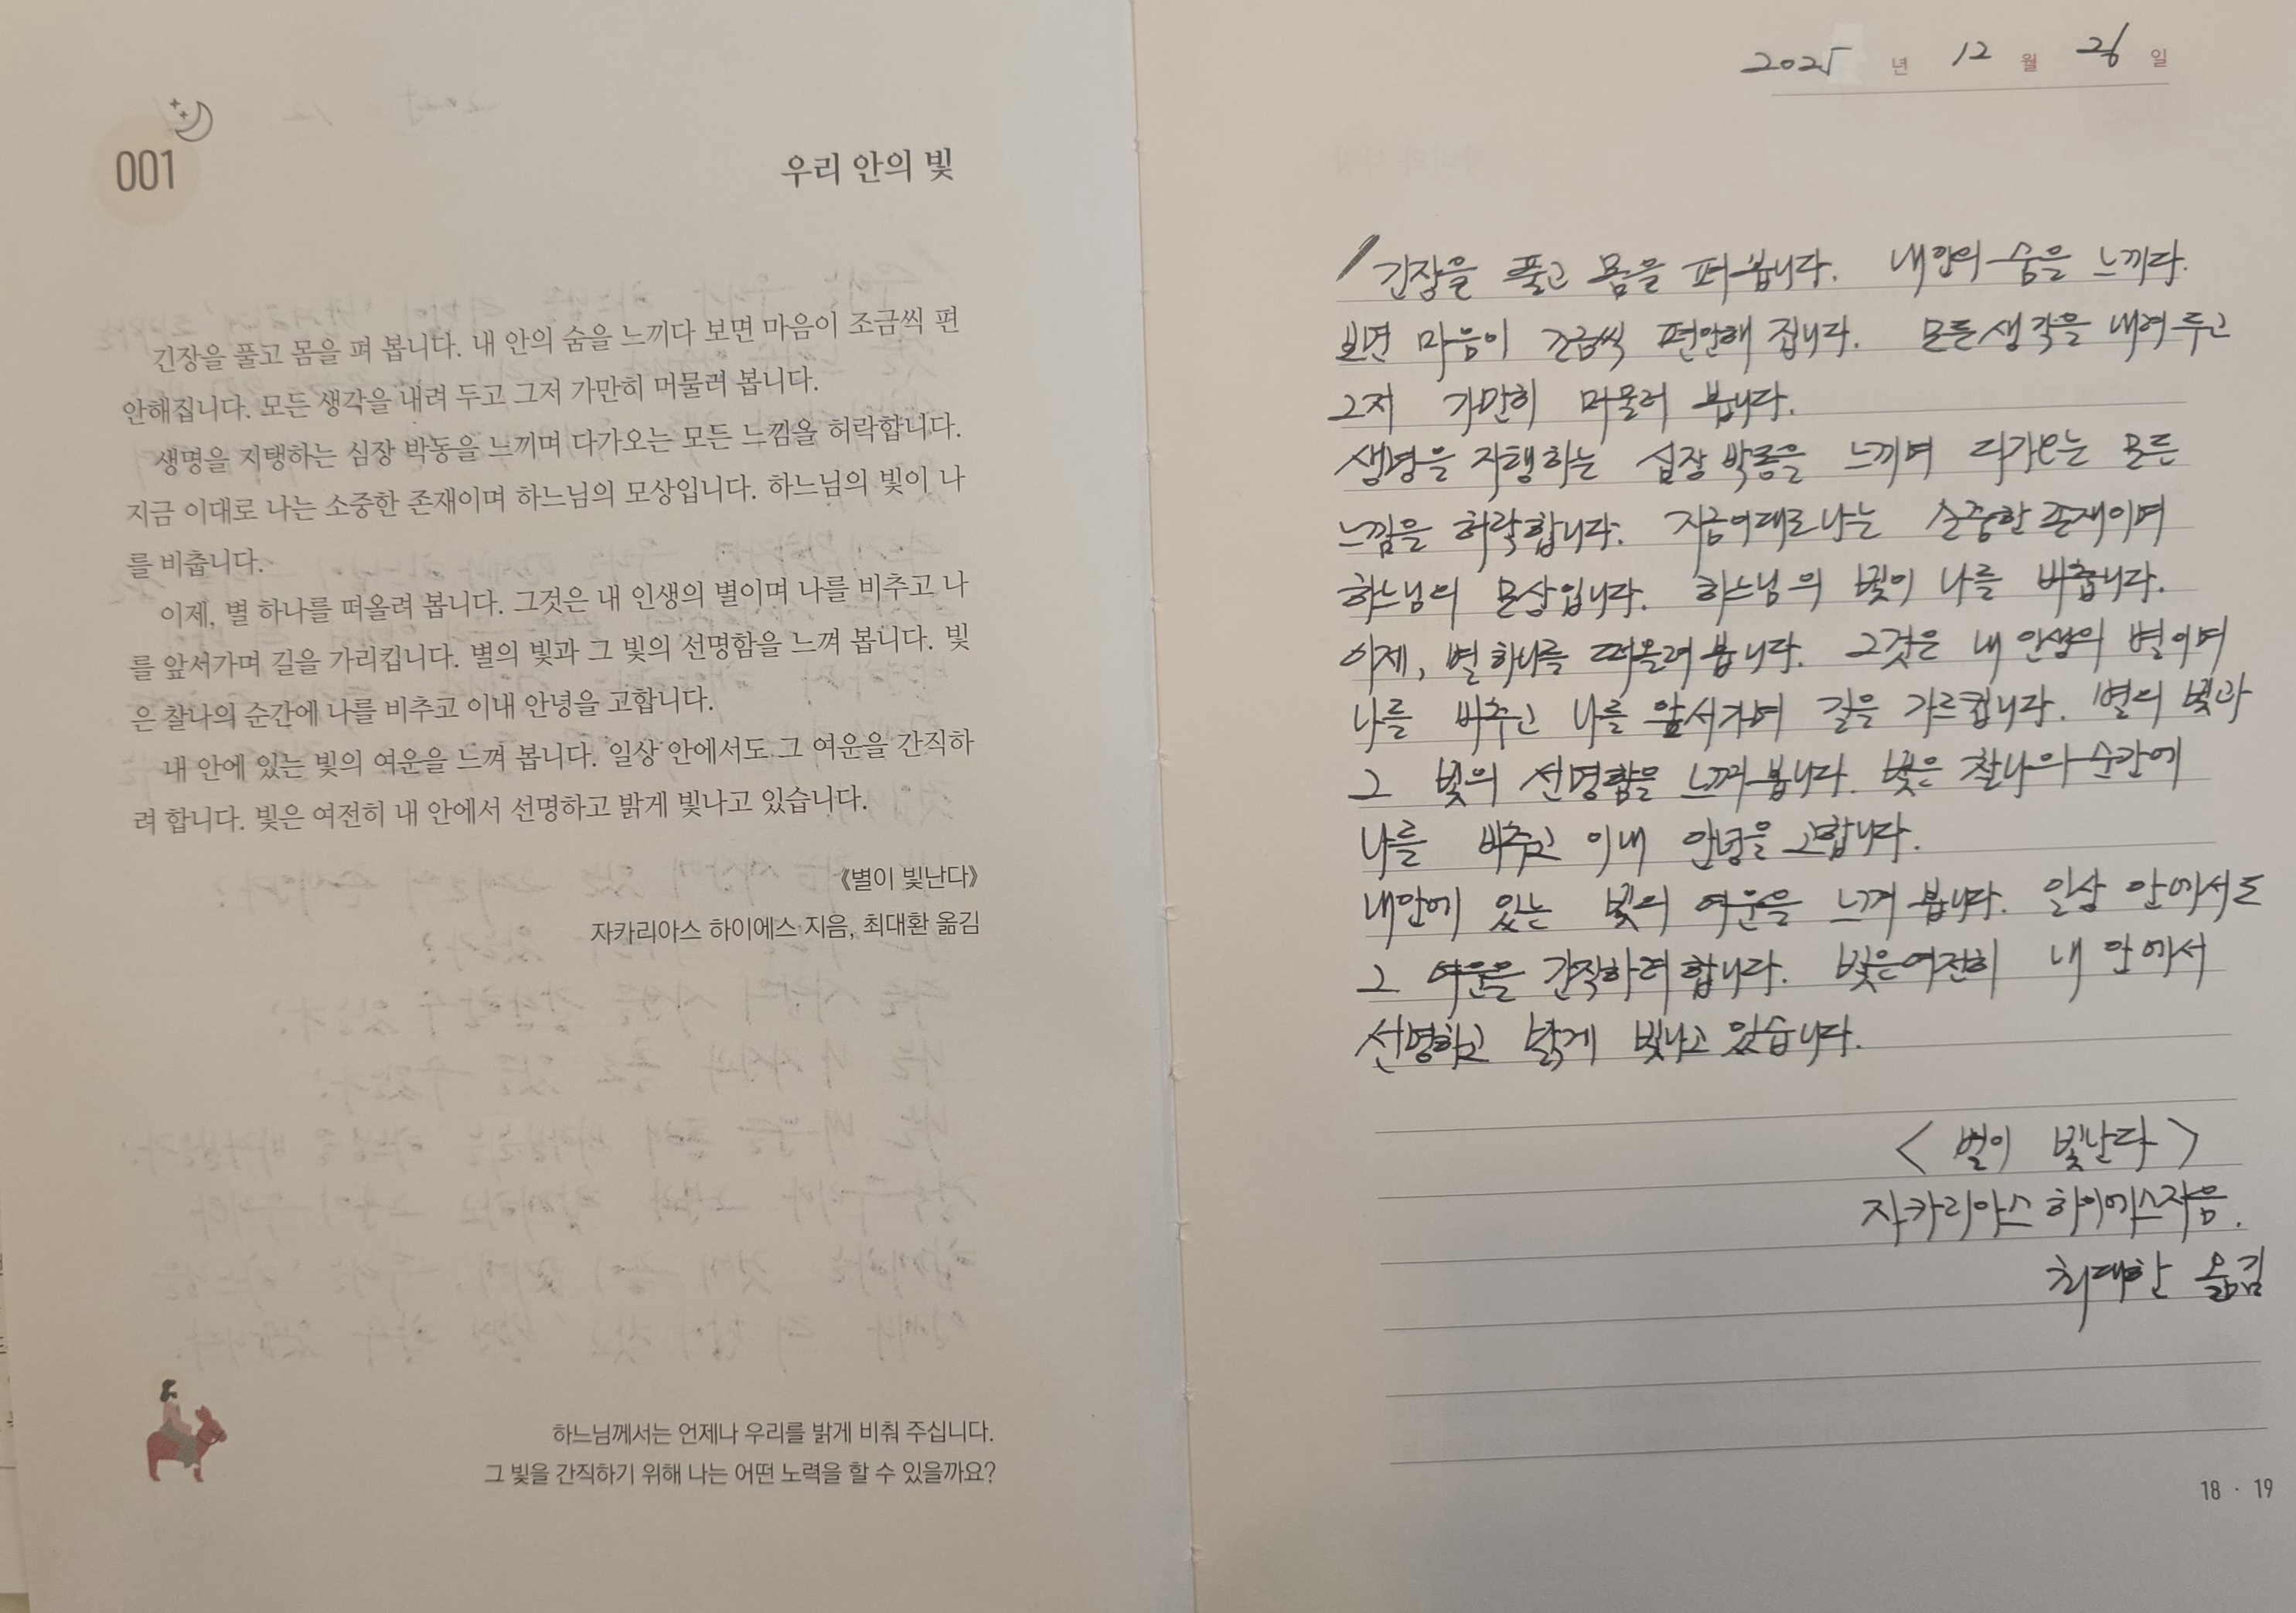 001
우리 안의 빛
긴장을 풀고 몸을 펴 봅니다. 내 안의 숨을 느끼다 보면 마음이 조금씩 편
안해집니다. 모든 생각을 내려 두고 그저 가만히 머물러 봅니다.
생명을 지탱하는 심장 박동을 느끼며 다가오는 모든 느낌을 허락합니다.
지금 이대로 나는 소중한 존재이며 하느님의 모상입니다. 하느님의 빛이 나
를 비춥니다.
이제, 별 하나를 떠올려 봅니다. 그것은 내 인생의 별이며 나를 비추고 나
를 앞서가며 길을 가리킵니다. 별의 빛과 그 빛의 선명함을 느껴 봅니다. 빛
은 찰나의 순간에 나를 비추고 이내 안녕을 고합니다.
내 안에 있는 빛의 여운을 느껴 봅니다. 일상 안에서도 그 여운을 간직하
려 합니다. 빛은 여전히 내 안에서 선명하고 밝게 빛나고 있습니다.
《별이 빛난다》
자카리아스 하이에스 지음, 최대환 옮김
하느님께서는 언제나 우리를 밝게 비춰 주십니다.
그 빛을 간직하기 위해 나는 어떤 노력을 할 수 있을까요?
2025 년 12 월 26 일
긴장을 풀고 몸을 펴 봅니다. 내안의 숨을 느끼다.
보면 마음이 조금씩 편안해 집니다. 모든 생각을 내려 두고
그저 가만히 머물러 봅니다.
생명을 지탱하는 심장 박동을 느끼며 다가오는 모든
느낌을 허락합니다. 지금이대로 나는 소중한 존재이며
하느님의 모상입니다. 하느님의 빛이 나를 비춥니다.
이제, 별 하나를 떠올려 봅니다. 그것은 내 인생의 별이며
나를 비추고 나를 앞서가며 길을 가르킵니다. 별의 빛과
그 빛의 선명함을 느껴 봅니다. 빛은 찰나의 순간에
나를 비추고 이내 안녕을 고합니다.
내안에 있는 빛의 여운을 느껴 봅니다. 일상 안에서도
그 여운을 간직하려 합니다. 빛은 여전히 내 안에서
선명하고 밝게 빛나고 있습니다.
< 별이 빛난다 >
자카리아스 하이에스지음.
최대환 옮김
18 · 19